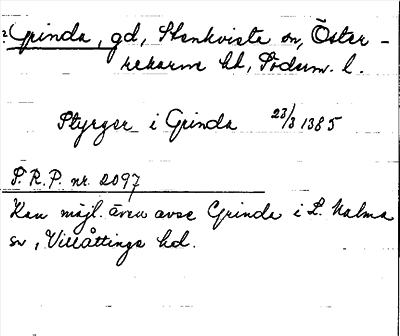 ? Grinda, gd, Stenkvista sn, Öster-
rekarne hd, Söderm. l.
Styrger i Grinda 23/3 1385
P.R.P. nr. 2097
Kan möjl. även avse Grinda i L. Malma
sn, Villåttinge hd.